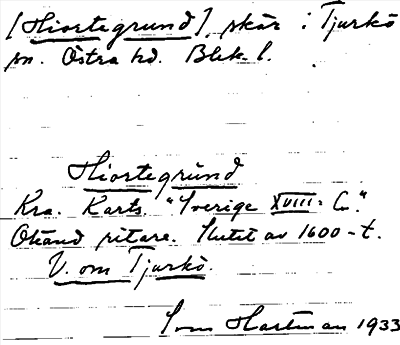 [Hiortegrund], skär i Tjurkö
sn. Östra hd. Blek. l.
Hiortegrund
Kra. Karts. "Sverige XVIII: C."
Okänd ritare. Slutet av 1600-t.
V. om Tjurkö.
Sven Hartman 1933